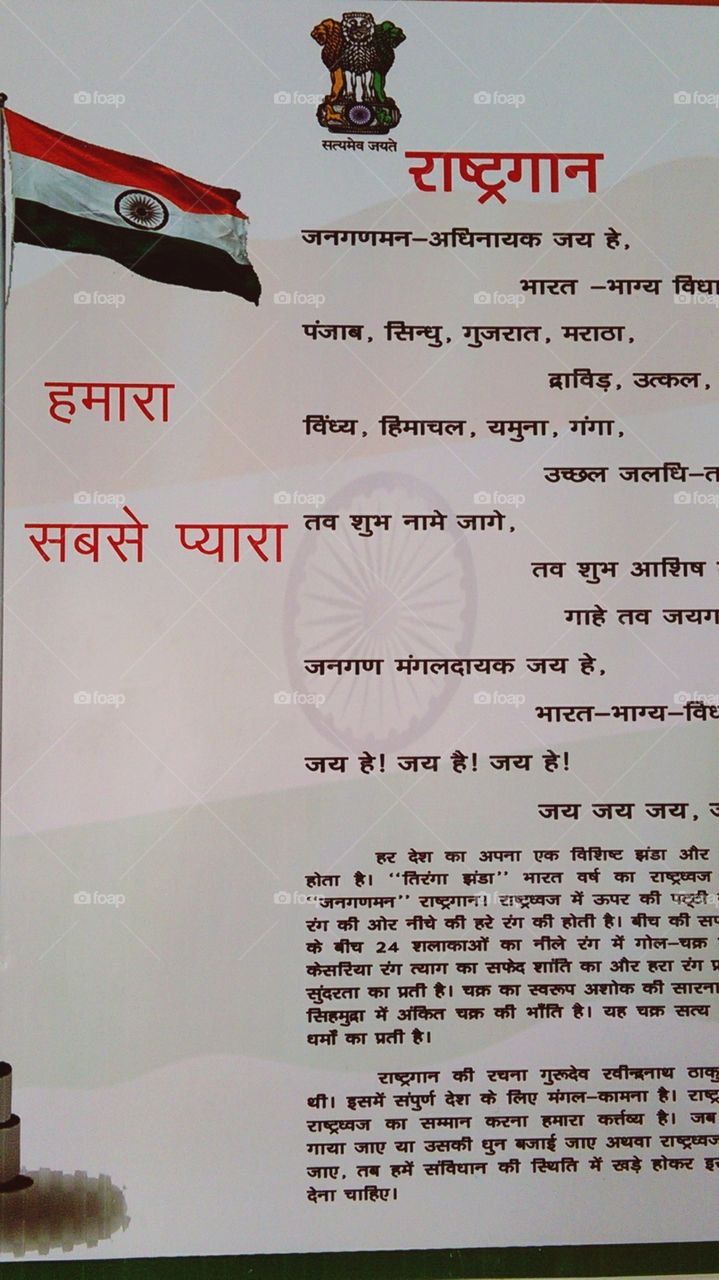 सत्यमेव जयते
राष्ट्रगान
जनगणमन–अधिनायक जय हे,
भारत –भाग्य विधा
पंजाब, सिन्धु, गुजरात, मराठा,
द्राविड़, उत्कल,
हमारा
विंध्य, हिमाचल, यमुना, गंगा,
उच्छल जलधि–त
सबसे प्यारा
तव शुभ नामे जागे,
तव शुभ आशिष
गाहे तव जयग
जनगण मंगलदायक जय हे,
भारत–भाग्य–विध
जय हे! जय है! जय हे!
जय जय जय,
हर देश का अपना एक विशिष्ट झंडा और
होता है। ‘‘तिरंगा झंडा’’ भारत वर्ष का राष्ट्रध्वज
‘‘जनगणमन’’ राष्ट्रगान। राष्ट्रध्वज में ऊपर की पट्टी
रंग की ओर नीचे की हरे रंग की होती है। बीच की सफ
के बीच 24 शलाकाओं का नीले रंग में गोल–चक्र
केसरिया रंग त्याग का सफेद शांति का और हरा रंग प्र
सुंदरता का प्रती है। चक्र का स्वरूप अशोक की सारना
सिहमुद्रा में अंकित चक्र की भाँति है। यह चक्र सत्य
धर्मों का प्रती है।
राष्ट्रगान की रचना गुरूदेव रवीन्द्रनाथ ठाकु
थी। इसमें संपुर्ण देश के लिए मंगल–कामना है। राष्ट्र
राष्ट्रध्वज का सम्मान करना हमारा कर्त्तव्य है। जब
गाया जाए या उसकी धुन बजाई जाए अथवा राष्ट्रध्वज
जाए, तब हमें संविधान की स्थिति में खड़े होकर इस
देना चाहिए।